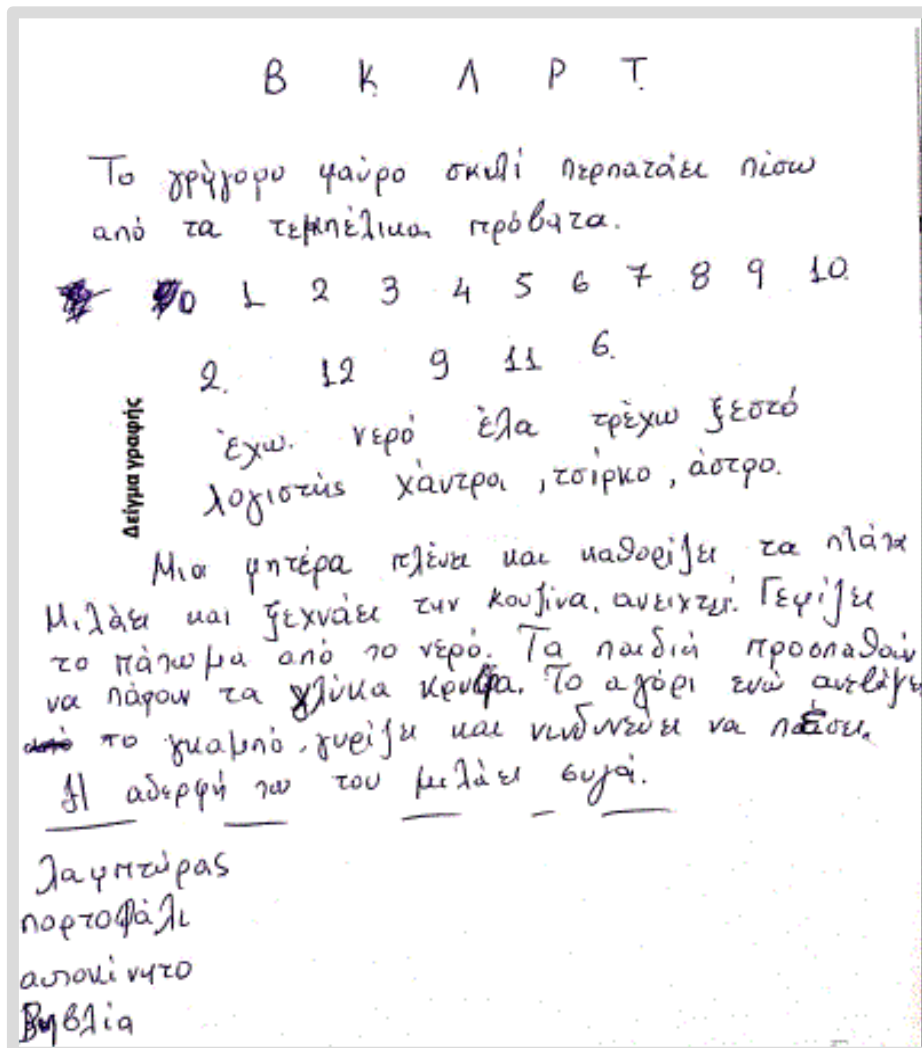 Β Κ Λ Ρ Τ.
Το γρήγορο μαύρο σκυλί περπατάει πίσω
από τα τεμπέλικα πρόβατα.
0 1 2 3 4 5 6 7 8 9 10.
2. 12 9 11 6.
Δείγμα γραφής
έχω. νερό έλα τρέχω ξεστό
λογιστής χάντροι, τσίρκο, άστρο.
Μια μητέρα πλένει και καθορίζει τα πιάτα
Μιλάει και ξεχνάει την κουζίνα. ανειχτή. Γεμίζει
το πάτωμα από το νερό. Τα παιδιά προσπαθούν
να πάρουν τα γλύκα κρυφα. Το αγόρι ενώ
το γκαμπό. γυρίζει και κινδυνεύει να πέσει.
Η αδερφή του του μιλάει συγά.
λαμπτύρας
πορτοφάλι
αυτοκίνητο
Βηβλία